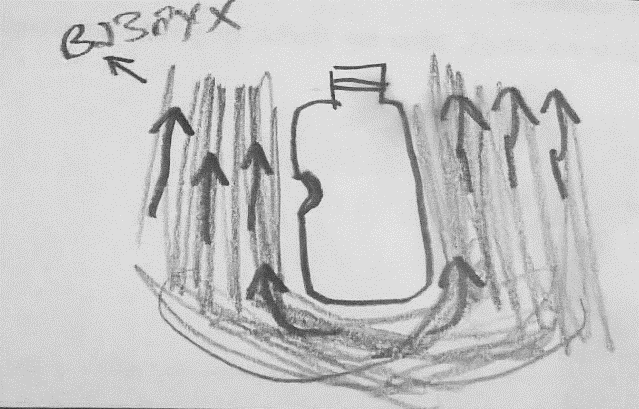 ВОЗДУХ